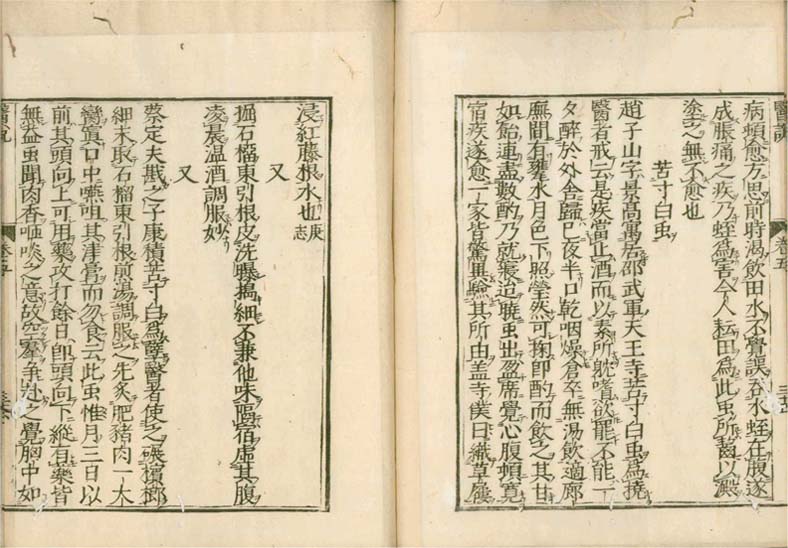 醫説 卷五
病頓愈方思前時渴飲田水不覺誤吞水蛭在腹遂
成脹痛之疾乃蛭爲害今人耘田爲此虫所齧以澱
塗之無不愈也
苦寸白虫
趙子山字景高寓居邵武軍天王寺苦寸白虫爲撓
醫者戒云是疾當止酒而以素所躭嗜欲罷不能一
夕醉於外舍歸已夜半口乾咽燥倉卒無湯飲適廊
廡間有甕水月色下照瑩然可掬即酌而飲之其甘
如飴連盡數酌乃就寢迨曉虫出盈席覺心腹頓寛
宿疾遂愈一家皆驚異驗其所由盖寺僕日織草屨
浸紅藤根水也庚志
又
掘石榴東引根皮洗曝搗細不兼他味隔宿虚其腹
凌晨温酒調服妙
又
蔡定夫戡之子康積苦寸白爲孽醫者使之碾檳榔
細末取石榴東引根煎湯調服之先炙肥猪肉一大
臠寘口中嚥咀其津膏而勿食云此虫惟月三日以
前其頭向上可用藥攻打餘日即頭向下縱有藥皆
無益虫聞肉香咂啖之意故空羣争赴之覺胸中如
醫説 卷五